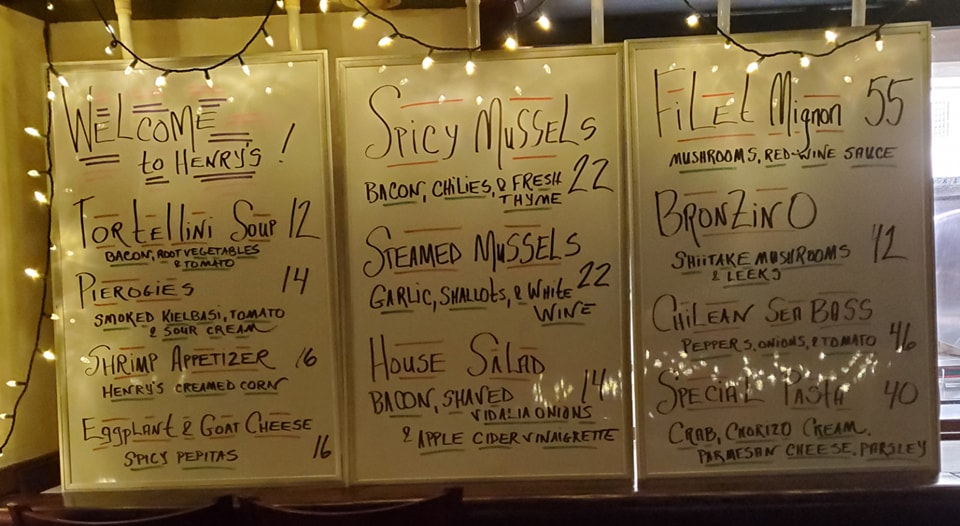 WELCOME
to HENRY'S !
TORtEllINi SOUP 12
BACON, ROOT VEGETABLES
& TOMATO
PIEROGIES 14
SMOKED KIELBASI, TOMATO
& SOUR CREAM
SHRIMP APPETIZER 16
HENRY'S CREAMED CORN
EggplANt & GOAT CHEESE
SPICY PEPITAS 16
SPICY MUSSELS
BACON, CHILIES, & FRESH 22
THYME
STEAMED MUSSELS
GARLIC, SHALLOTS, & WHITE 22
WINE
HOUSE SALAD
BACON, SHAVED 14
VIDALIA ONIONS
& APPLE CIDER VINAIGRETTE
FiLEt Mignon 55
MUSHROOMS, RED-WINE SAUCE
BRONZINO
SHIITAKE MUSHROOMS 42
& LEEKS
CHiLEAN SEA BASS
PEPPERS, ONIONS, & TOMATO 46
SPECIAL PASTA 40
CRAB, CHORIZO CREAM,
PARMESAN CHEESE, PARSLEY